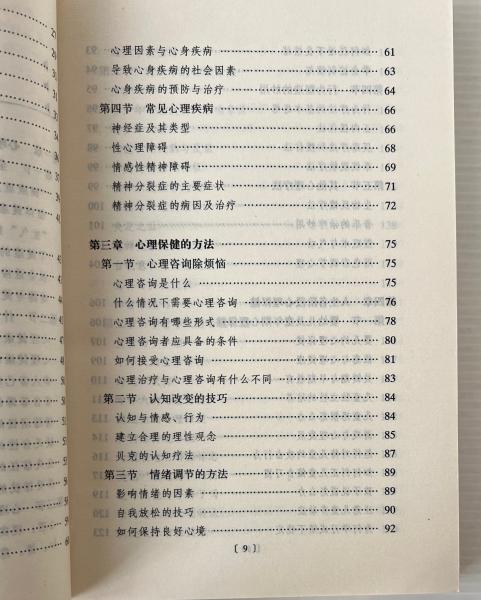 心理因素与心身疾病 …… 61
导致心身疾病的社会因素 …… 63
心身疾病的预防与治疗 …… 64
第四节 常见心理疾病 …… 66
神经症及其类型 …… 67
性心理障碍 …… 68
情感性精神障碍 …… 69
精神分裂症的主要症状 …… 71
精神分裂症的病因及治疗 …… 72
第三章 心理保健的方法 …… 75
第一节 心理咨询除烦恼 …… 75
心理咨询是什么 …… 75
什么情况下需要心理咨询 …… 76
心理咨询有哪些形式 …… 78
心理咨询者应具备的条件 …… 80
如何接受心理咨询 …… 81
心理治疗与心理咨询有什么不同 …… 83
第二节 认知改变的技巧 …… 84
认知与情感、行为 …… 84
建立合理的理性观念 …… 85
贝克的认知疗法 …… 87
第三节 情绪调节的方法 …… 89
影响情绪的因素 …… 89
自我放松的技巧 …… 90
如何保持良好心境 …… 92
〔9〕